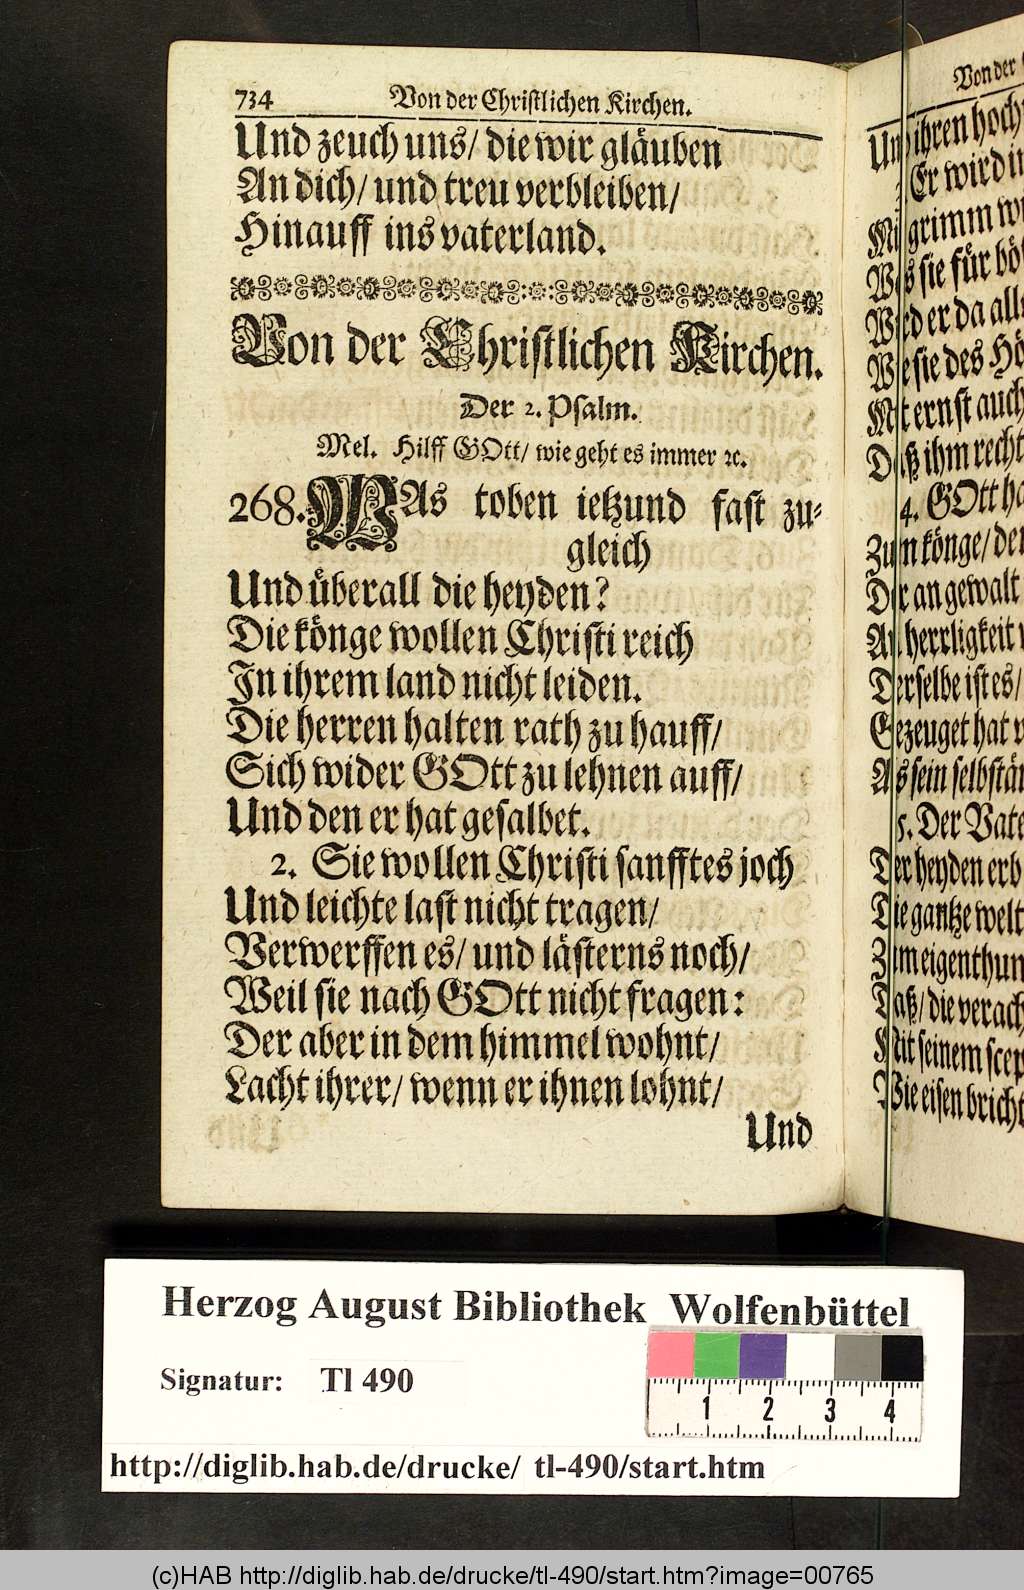 734 Von der Christlichen Kirchen.
Und zeuch uns/ die wir gläuben
An dich/ und treu verbleiben/
Hinauff ins vaterland.
Von der Christlichen Kirchen.
Der 2. Psalm.
Mel. Hilff GOtt/ wie geht es immer ꝛc.
268. WAs toben ietzund fast zu-
gleich
Und überall die heyden?
Die könge wollen Christi reich
In ihrem land nicht leiden.
Die herren halten rath zu hauff/
Sich wider GOtt zu lehnen auff/
Und den er hat gesalbet.
2. Sie wollen Christi sanfftes joch
Und leichte last nicht tragen/
Verwerffen es/ und lästerns noch/
Weil sie nach GOtt nicht fragen:
Der aber in dem himmel wohnt/
Lacht ihrer/ wenn er ihnen lohnt/
Und
Von der
Und ihren hoch
Er wird
grimm
sie für
er da
sie des
ernst auch
Daß ihm recht
4. GOtt
Zum könge/
Der an gewalt
An herrligkeit
Derselbe ist es/
Gezeuget hat
Als sein
5. Der
Der heyden erb
Die gantze welt
Zum
Daß/ die
Mit seinem
Wie eisen bricht
Herzog August Bibliothek Wolfenbüttel
Signatur: Tl 490
1 2 3 4
http://diglib.hab.de/drucke/ tl-490/start.htm
(c)HAB http://diglib.hab.de/drucke/tl-490/start.htm?image=00765